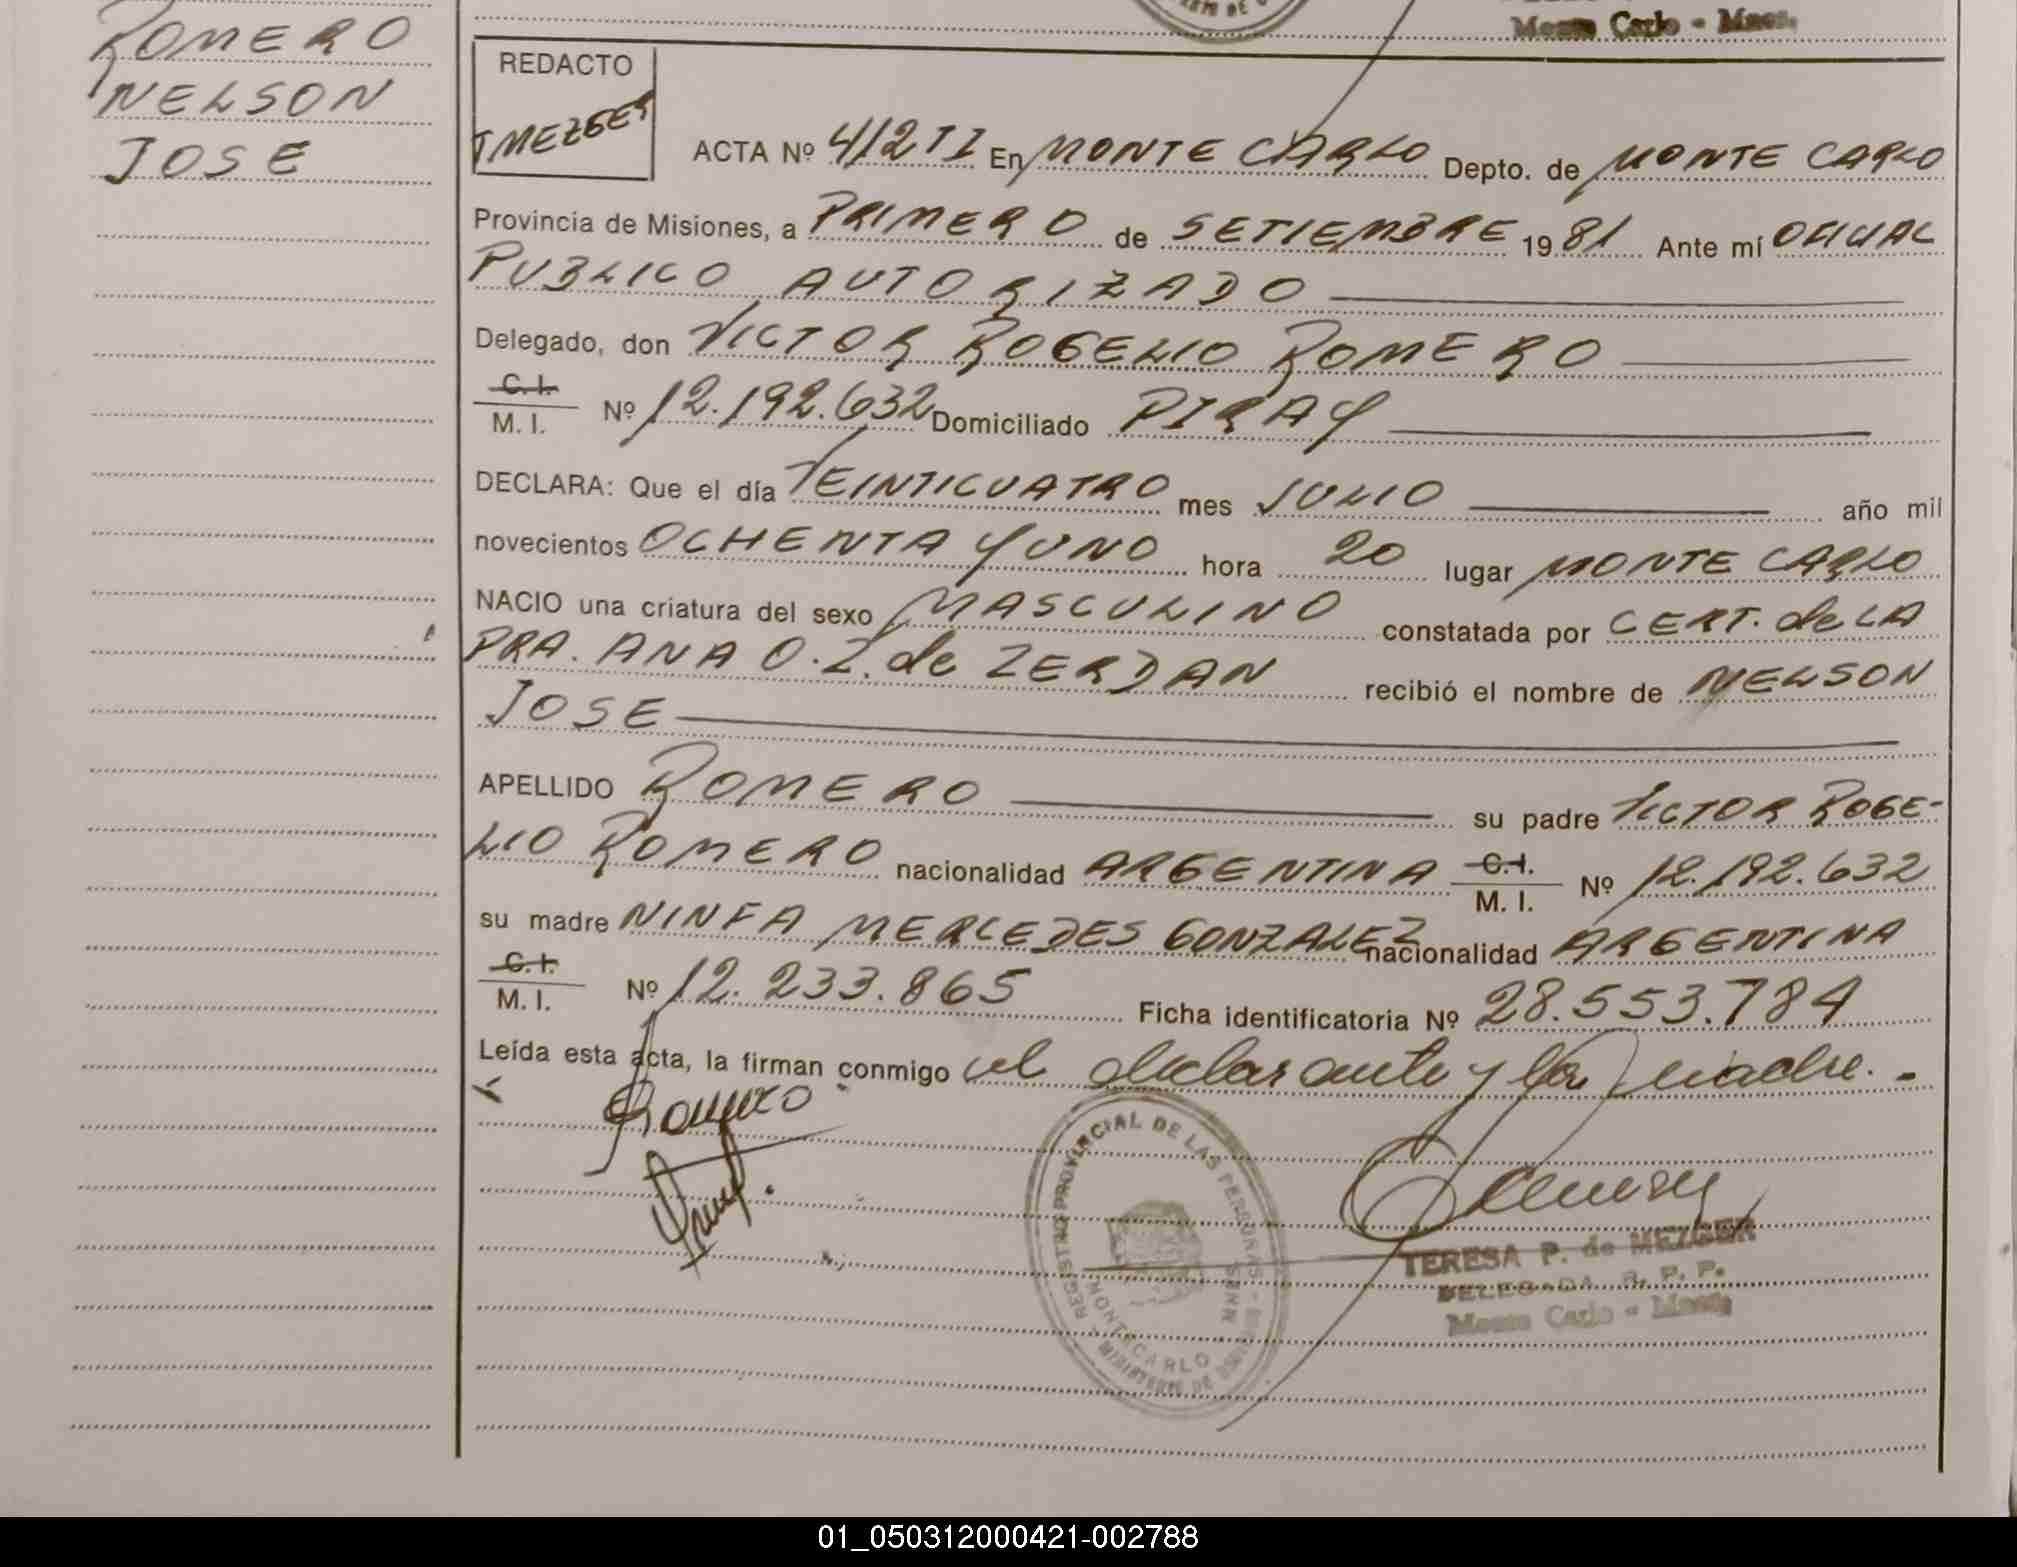 Monte Carlo - Mnes.
ROMERO
NELSON
JOSE
REDACTO
T MEZGER
ACTA Nº 412 TI En MONTE CARLO Depto. de MONTE CARLO
Provincia de Misiones, a PRIMERO de SETIEMBRE 1981 Ante mí OFICIAL
PUBLICO AUTORIZADO
Delegado, don VICTOR ROGELIO ROMERO
C. I.
M. I. Nº 12.192.632 Domiciliado PIRAY
DECLARA: Que el día VEINTICUATRO mes JULIO año mil
novecientos OCHENTA Y UNO hora 20 lugar MONTE CARLO
NACIO una criatura del sexo MASCULINO constatada por CERT. de LA
DRA. ANA O. Z. de ZERDAN recibió el nombre de NELSON
JOSE
APELLIDO ROMERO su padre VICTOR ROGE-
LIO ROMERO nacionalidad ARGENTINA C.I. M. I. Nº 12.192.632
su madre NINFA MERCEDES GONZALEZ nacionalidad ARGENTINA
C. I.
M. I. Nº 12.233.865 Ficha identificatoria Nº 28.553.784
Leída esta acta, la firman conmigo el declarante y la madre.-
Romero
REGISTRO PROVINCIAL DE LAS PERSONAS
MONTECARLO
MINISTERIO DE
TERESA P. de MEZGER
DELEGADA R. P. P.
Monte Carlo - Mnes.
01_050312000421-002788